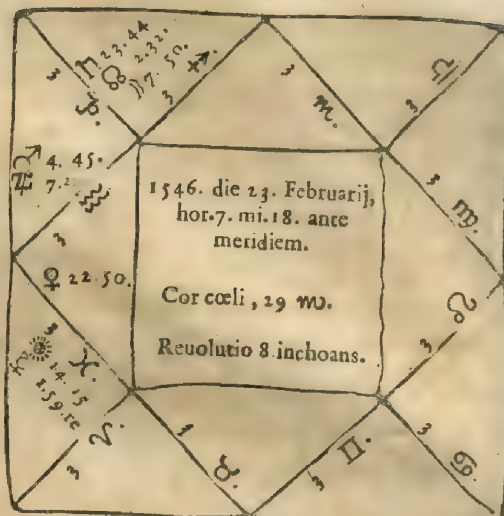 ♄ 23.44
☊ 2.32.
☽ 7. 50.
♐.
3
3
♑.
3
♏.
3
♎
♂ 4. 45.
♃
♒
3
3
♍.
1546. die 23. Februarij,
hor. 7. mi. 18. ante
meridiem.
Cor cœli, 29 ♏.
Reuolutio 8. inchoans.
♀ 22.50.
♌
3
☉ 14. 15
1.59. re
♓.
♈.
3
3
♉.
3
♊.
3
♋